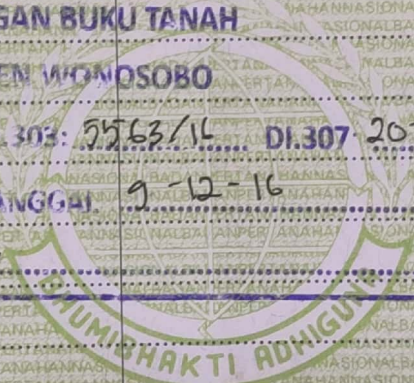 GAN BUKU TANAH
EN WONOSOBO
.303: 5563/16 DI.307 20-
ANGGAL 9-12-16
BHUMIBHAKTI ADHIGUNA